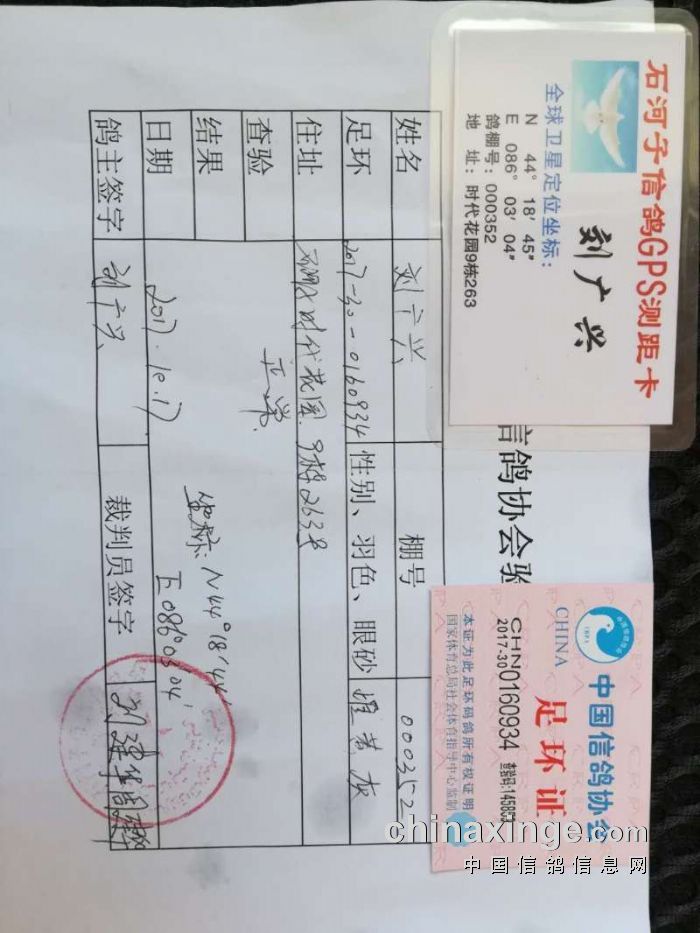 石河子信鸽GPS测距卡
刘广兴
全球卫星定位坐标:
N 44° 18′ 45″
E 086° 03′ 04″
鸽棚号:000352
地 址:时代花园9栋263
信鸽协会验
中国信鸽协会
CHINA
足环证
CHN
2017-30 0160934
查验码:14585
本证为此足环码鸽所有权证明
国家体育总局社会体育指导中心监制
姓名 刘广兴 棚号 000352
足环 2017-30-0160934 性别、羽色、眼砂 雄 黄 灰
住址 时代花园 9栋263号
查验 正常
结果 坐标:N44°18′44″
E 086°03′04″
日期 2017.10.17
鸽主签字 刘广兴 裁判员签字 刘建华
chinaxinge.com
中国信鸽信息网